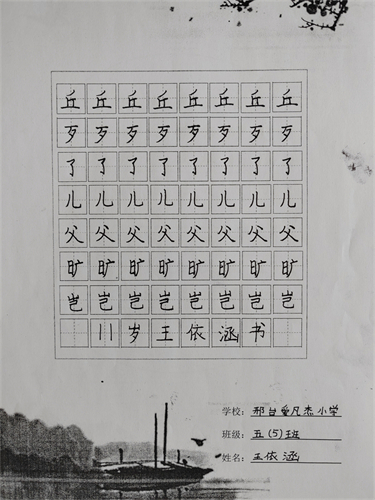 丘 丘 丘 丘 丘 丘 丘 丘
歹 歹 歹 歹 歹 歹 歹 歹
了 了 了 了 了 了 了 了
儿 儿 儿 儿 儿 儿 儿 儿
父 父 父 父 父 父 父 父
旷 旷 旷 旷 旷 旷 旷 旷
岂 岂 岂 岂 岂 岂 岂 岂
11 岁 王 依 涵 书
学校: 邢台凡杰小学
班级: 五(5)班
姓名: 王依涵